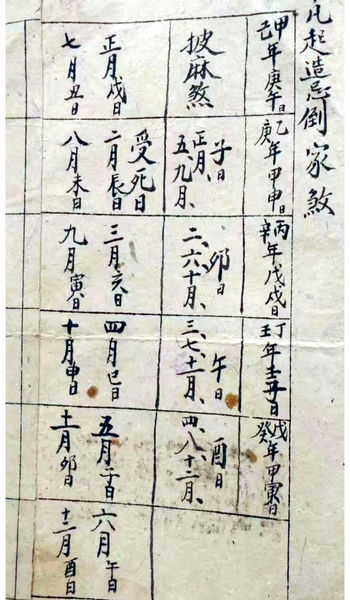 凡起造忌倒家煞
甲己年庚午日
乙庚年甲申日
丙辛年戊戌日
丁壬年丑日
戊癸年甲寅日
披麻煞
子日
正月、五、九月、
卯日
二、六、十月、
午日
三、七、十一月、
酉日
四、八、十二月、
受死日
正月戌日
二月辰日
三月亥日
四月巳日
五月子日
六月午日
七月丑日
八月未日
九月寅日
十月申日
十一月卯日
十二月酉日